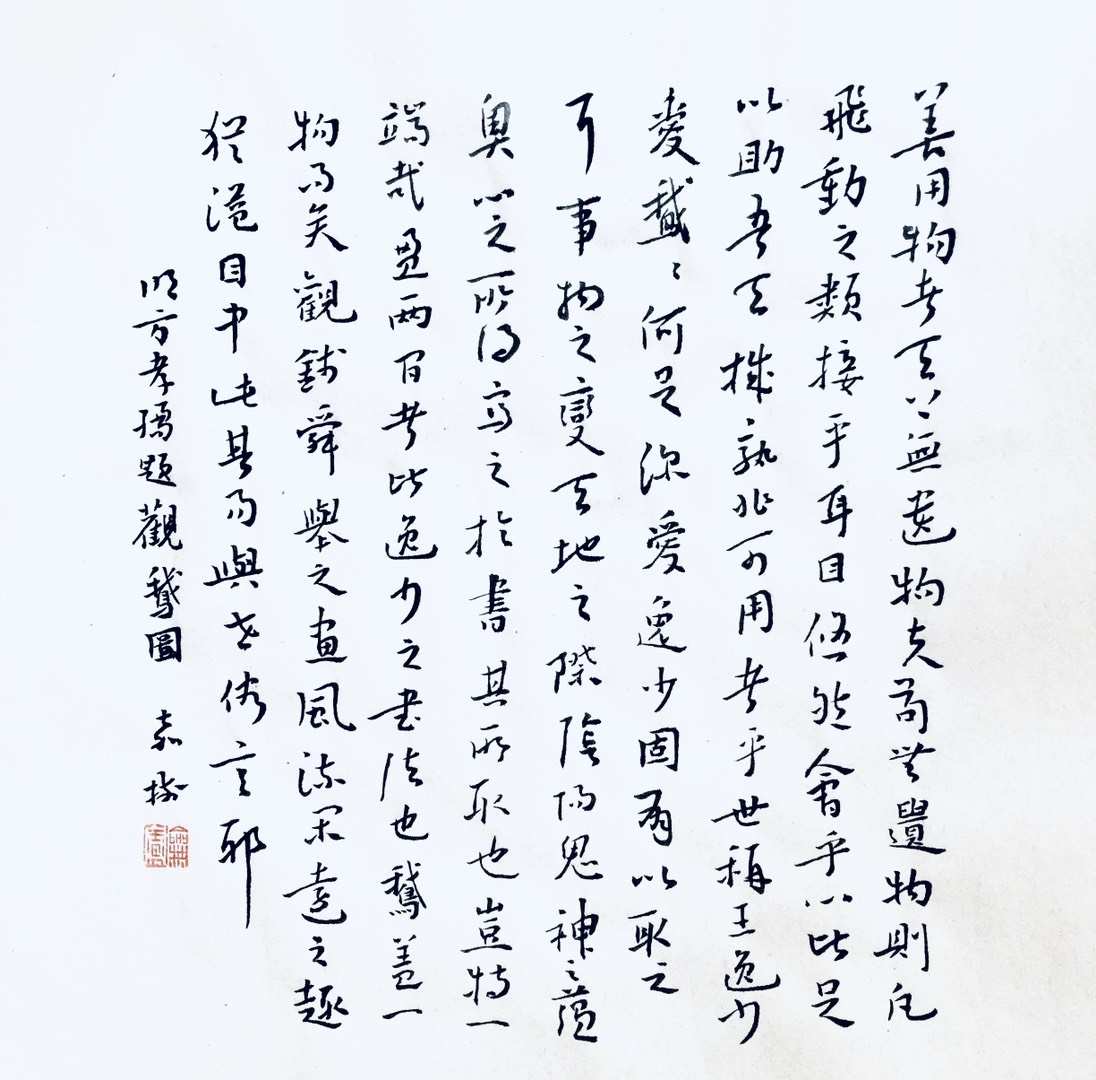 善用物者天下無遺物夫苟無遺物則凡
飛動之類接乎耳目悠然會乎心皆足
以助吾天機孰非可用者乎世稱王逸少
愛鵝〻何足深愛逸少固有以取之
耳事物之變天地之際陰陽鬼神之蘊
奧心之所得寓之於書其所取也豈特一
端哉盈兩間者皆逸少之書法也鵝蓋一
物而矣觀錢舜舉之畫風流閑遠之趣
猶溢目中此其與世俗言耶
明方孝孺題觀鵝圖 嘉樹